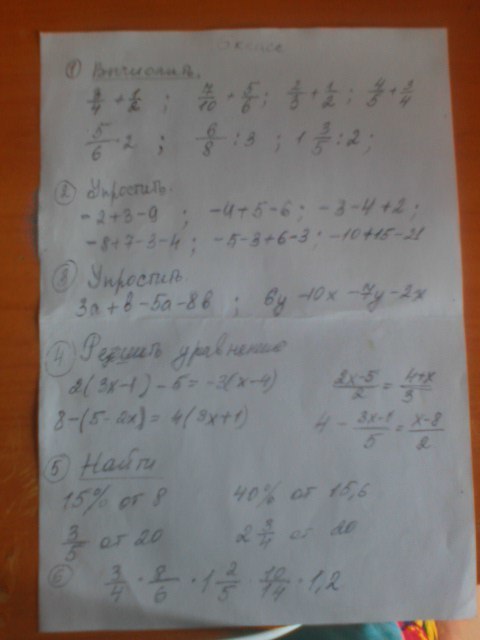 1 Вычислить.
3/4 + 1/2 ; 7/10 + 5/6 ; 2/5 + 1/2 ; 4/5 + 3/4
5/6 · 2 ; 6/8 : 3 ; 1 3/5 : 2 ;
2 Упростить.
-2+3-9 ; -4+5-6 ; -3-4+2 ;
-8+7-3-4 ; -5-3+6-3 ; -10+15-21
3 Упростить.
3а+в-5а-8в ; 6у-10х-7у-2х
4 Решить уравнение
2(3х-1)-5=-3(х-4) (2х-5)/2 = (4+х)/3
8-(5-2х)=4(3х+1) 4 - (3х-1)/5 = (х-8)/2
5 Найти
15% от 8 40% от 15,6
3/5 от 20 2 3/4 от 20
6 3/4 · 8/6 · 1 2/5 · 10/14 · 1,2